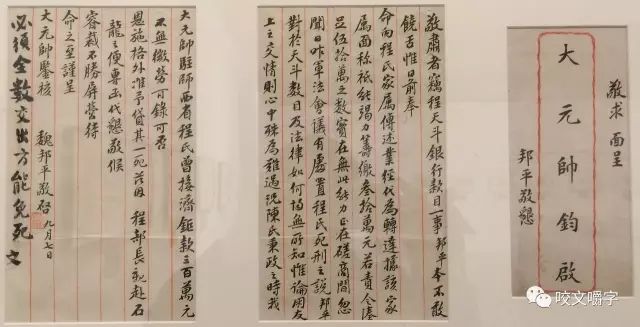 敬求 面呈
大元帥鈞啟
邦平敬懇
敬肅者竊程天斗銀行款目一事邦平本不敢
饒舌惟日前奉
命而程氏家属傳述業經代為轉達據該家
属面称祗能竭力籌繳叁拾萬元若責令湊
足伍拾萬之數實在無此能力正在磋商間忽
聞日昨軍法會議有處置程氏死刑之說邦平
對於天斗数目及法律如何均無所知惟論朋友
上之交情則心中殊屬難過況陳氏秉政之時我
大元帥駐師西省程氏曾接濟鉅款三百萬元
不無微勞可錄可否
恩施格外准予貸其一死茲因 程部長親赴石
龍之便專函代懇敬候
睿裁不勝屏營待
命之至謹呈
大元帥鑒核 魏邦平敬啟 九月七日
必須全數交出方能免死 文
咬文嚼字